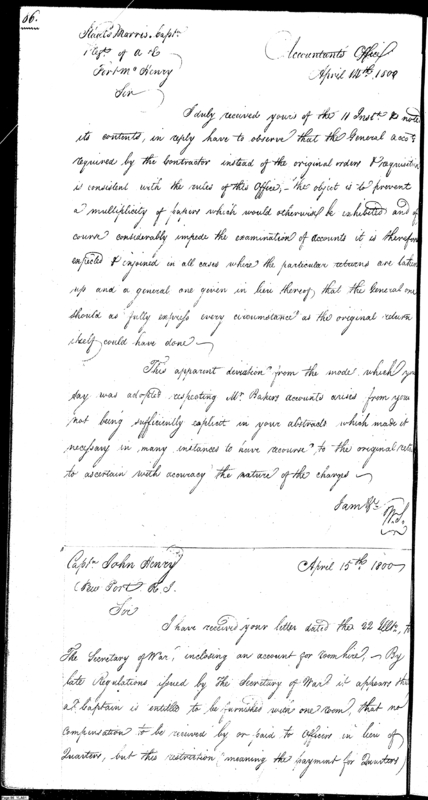 86.
Staats Morris. Capt.
1 Regt. of A & E
Fort Mc Henry
Sir
Accountants Office
April 14th. 1800
I duly received yours of the 11 Inst. & note
its contents, in reply have to observe that the General acct.
required by the Contractor instead of the original orders & requisition
is consistent with the rules of this Office;- the object is to prevent
a multiplicity of papers which would otherwise be exhibited and of
course considerably impede the examination of accounts it is therefore
expected & injoined in all cases where the particular returns are taken
up and a general one given in lieu thereof that the General one
should as fully express every circumstance as the original return
itself could have done
This apparent deviation from the mode which you
say was adopted respecting Mr. Bakers accounts arises from your
not being sufficiently explicit in your abstracts which made it
necessary in many instances to have recourse to the original retu
to ascertain with accuracy the nature of the charges
I am &c
W. S.
Capt. John Henry
New Port R. I.
Sir
April 15th. 1800
I have received your letter dated the 22 Ulto., to
The Secretary of War, inclosing an account for room hire - By
late Regulations issued by the Secretary of War it appears that
a Captain is entitled to be furnished with one room, that no
compensation to be received by or paid to Officers in lieu of
Quarters, but this restriction "meaning the payment for Quarters)